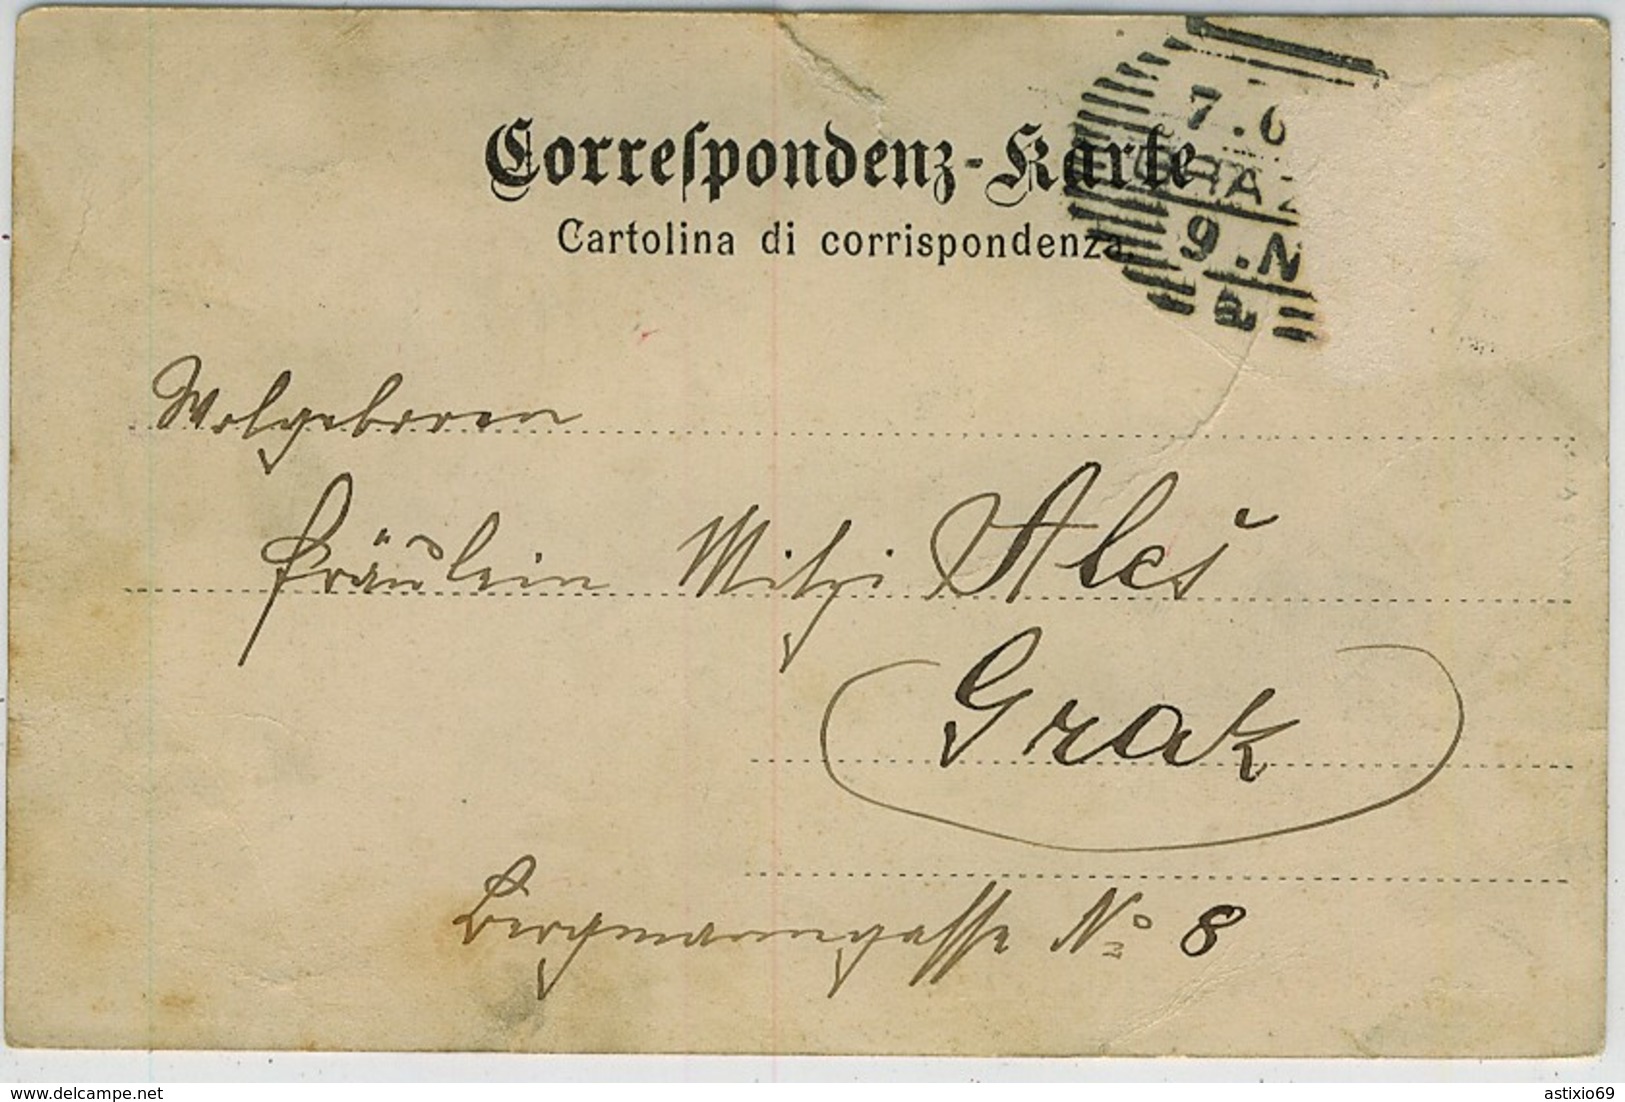 Correspondenz-Karte
Cartolina di corrispondenza.
7.6
GRAZ
9.N
a
Wolgeboren
Fräulein Mitzi Aleš
Graz
Bergmanngasse No 8
www.delcampe.net
astixio69